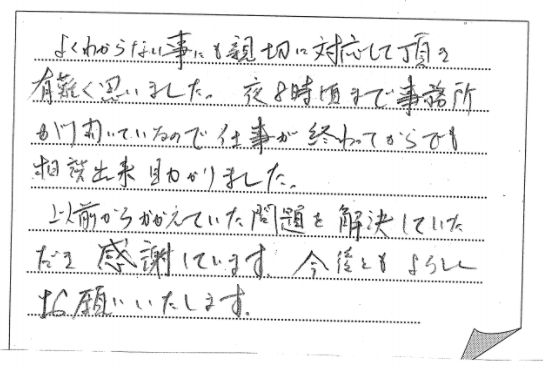 よくわからない事にも親切に対応して頂き
有難く思いました。夜8時頃まで事務所
が開いているので仕事が終わってからでも
相談出来助かりました。
以前からかかえていた問題を解決していた
だき感謝しています。今後ともよろしく
お願いいたします。